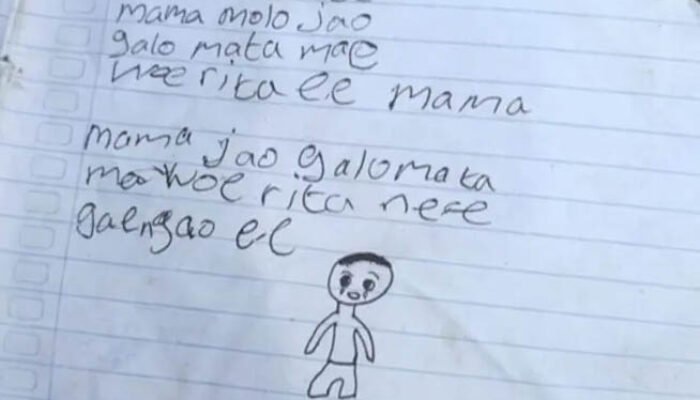 mama molo jao
galo mata mae
woe rita ee mama
mama jao galo mata
mae woe rita ne'e
gae ngao ee